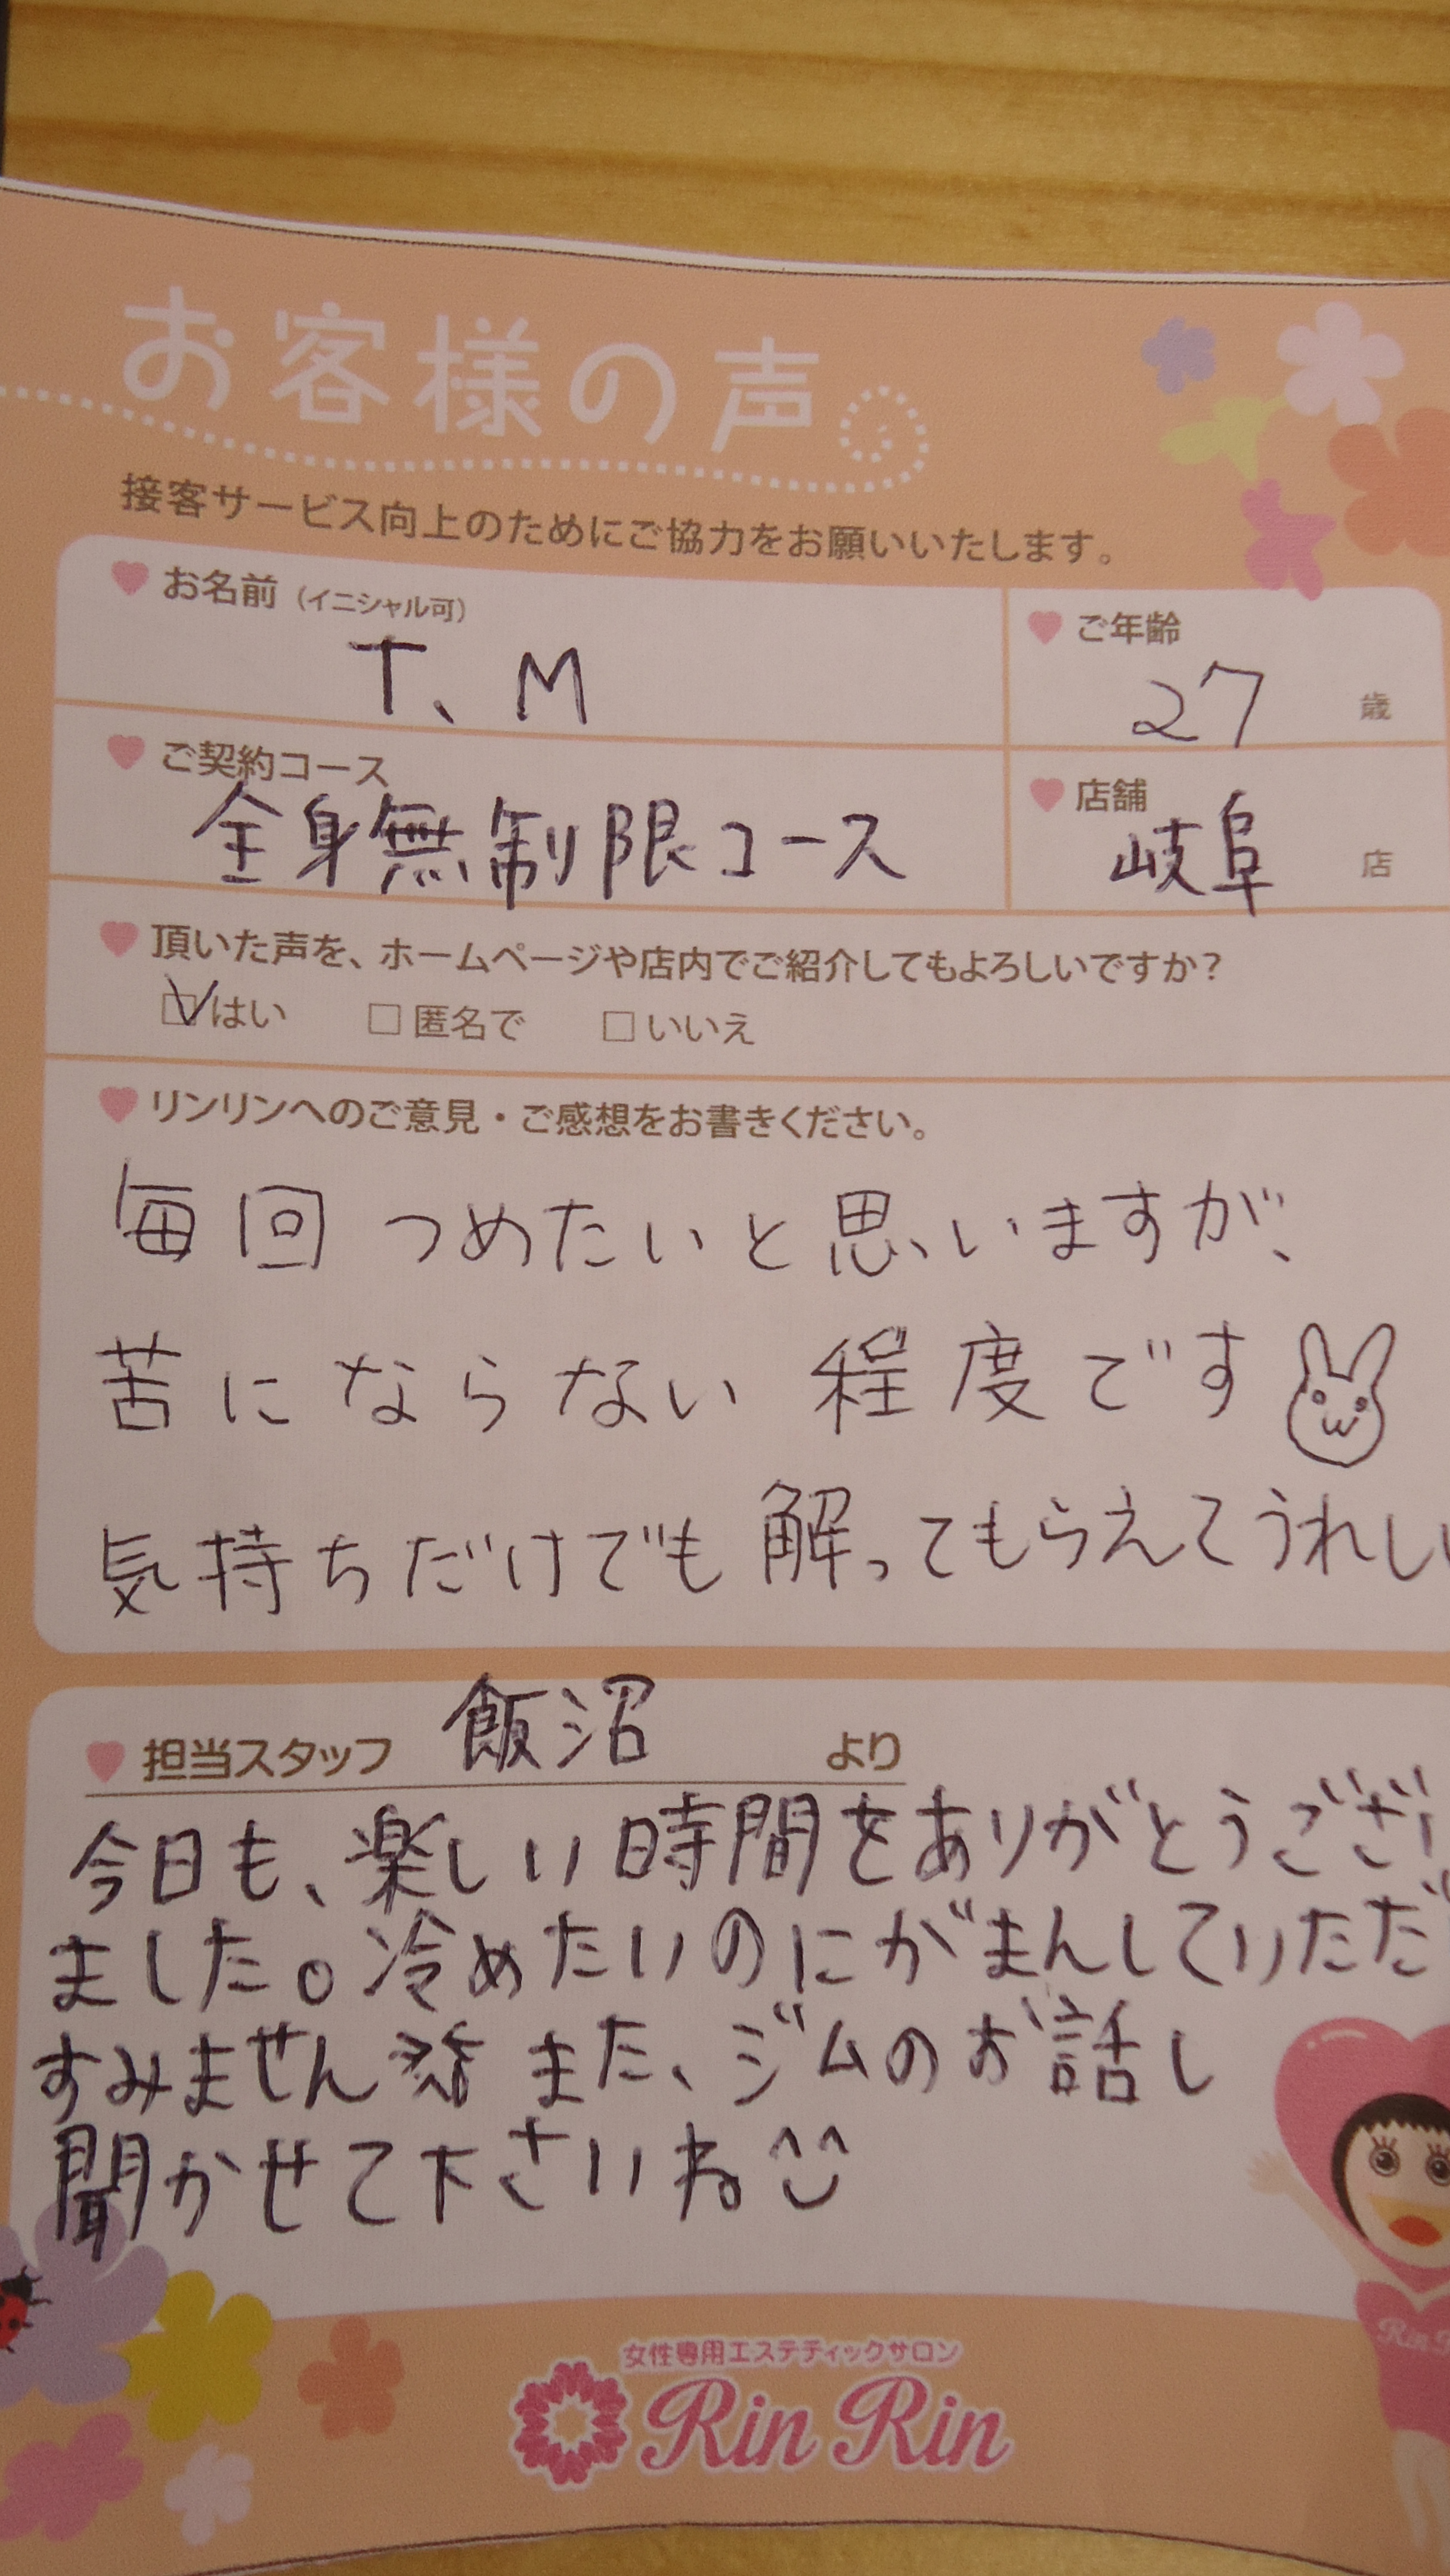 お客様の声
接客サービス向上のためにご協力をお願いいたします。
お名前（イニシャル可）
T、M
ご年齢
27 歳
ご契約コース
全身無制限コース
店舗
岐阜 店
頂いた声を、ホームページや店内でご紹介してもよろしいですか？
はい 匿名で いいえ
リンリンへのご意見・ご感想をお書きください。
毎回つめたいと思いますが、
苦にならない程度です
気持ちだけでも解ってもらえてうれし
担当スタッフ 飯沼 より
今日も、楽しい時間をありがとうござい
ました。冷めたいのにがまんしていただ
すみません また、ジムのお話し
聞かせて下さいね
女性専用エステティックサロン
Rin Rin